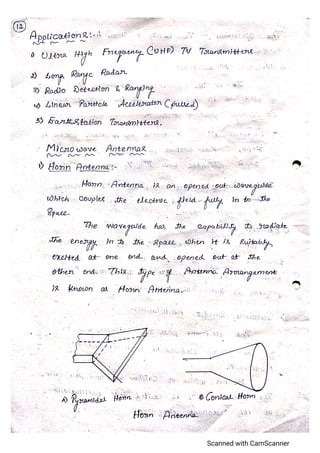 12
Applications:-
1) Ultra High Freqaency (UHF) TV Transmitters.
2) Long Range Radar
3) Radio Detection & Ranging
4) Linear Particle Accelerator (pulsed)
5) Earth Station Transmitters.
Microwave Antennas
1) Horn Antenna:-
Horn Antenna is an opened-out waveguide
which couples the electric field fully in to the
space.
The waveguide has the capability to radiate
the energy in to the space when it is suitably
excited at one end and opened out at the
other end. This type of Antenna Arrangement
is known as Horn Antenna.
A) Pyramidal Horn
B) Conical Horn
Horn Antenna
Scanned with CamScanner